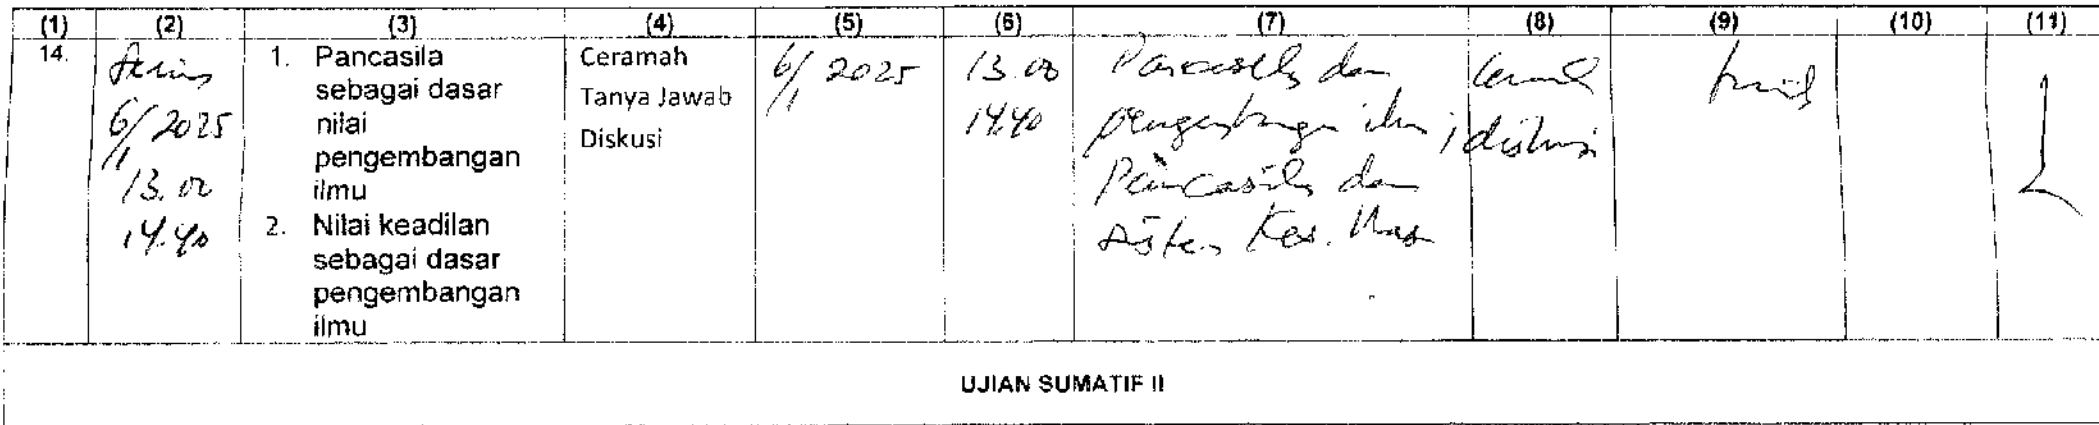 (1) (2) (3) (4) (5) (6) (7) (8) (9) (10) (11)
14.
Senin
6/1 2025
13.00
14.40
1. Pancasila
sebagai dasar
nilai
pengembangan
ilmu
2. Nilai keadilan
sebagai dasar
pengembangan
ilmu
Ceramah
Tanya Jawab
Diskusi
6/1 2025
13.00
14.40
Pancasila dan
ilmu
Pancasila dan
sistem Kes.
diskusi
UJIAN SUMATIF II